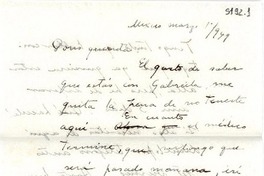 9192.1
Mexico marzo 1º/949
Doris querida:
El gusto de saber
que estás con Gabriela, me
quita la pena de no tenerte
aquí. Ahora En cuanto médico
termine, que supongo que
será pasado mañana, iré